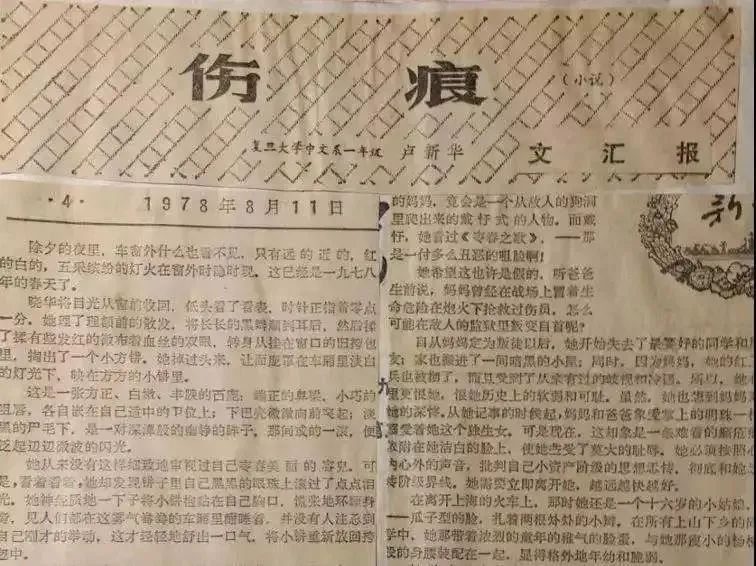 伤痕
（小说）
复旦大学中文系一年级 卢新华
文汇报
·4· 1978年8月11日
除夕的夜里，车窗外什么也看不见，只有远的近的，红
的白的，五采缤纷的灯火在窗外时隐时现。这已经是一九七八
年的春天了。
晓华将目光从窗前收回，低头看了看表，时针正指着零点
一分。她理了理额前的散发，将长长的黑辫顺到耳后，然后揉
了揉有些发红的微布着血丝的双眼，转身从挂在窗口的旧挎包
里，掏出了一个小方镜。她掉过头来，让面庞罩在车厢里淡白
的灯光下，映在方方的小镜里。
这是一张方正、白嫩、丰腴的面庞：端正的鼻梁、小巧的
嘴唇，各自嵌在自己适中的部位上；下巴壳微微向前突起；淡
黑的眉毛下，是一对深潭般的幽静的眸子，那间或的一滚，便
泛起道道微波的闪光。
她从来没有这样细致地审视过自己青春美丽的容貌。可
是，看着看着，她却发现镜子里自己黑黑的眼珠上滚过了点点泪
光。她神经质地一下子将小镜抱贴在自己胸口，慌张地环顾身
旁，见人们都在这雾气腾腾的车厢里酣睡着，并没有人注意到
自己刚才的举动，这才轻轻地舒出一口气，将小镜重新放回挎
包中。
的妈妈，竟会是一个从敌人的狗洞
里爬出来的戴愉式的人物。而戴
愉，她看过《青春之歌》，——那
是一付多么丑恶的嘴脸啊！
她希望这也许是假的，听爸爸
生前说，妈妈曾经在战场上冒着生
命危险在炮火下抢救过伤员，怎么
可能在敌人的监狱里叛变自首呢？
自从妈妈定为叛徒以后，她开始失去了最要好的同学和朋
友；家也搬进了一间暗黑的小屋；同时，因为妈妈，她的红卫
兵也被撤了，而且受到了从未有过的歧视和冷遇。所以，她心
里更恨她，恨她历史上的软弱和可耻。虽然，她也想到妈妈对
她的深情。从她记事的时候起，妈妈和爸爸象爱掌上的明珠一样
溺爱着她这个独生女。可是现在，这却象是一条难看的癞疮疤
依附在她洁白的脸上，使她蒙受了莫大的耻辱。她必须按照心
内心外的声音，批判自己小资产阶级的思想感情，彻底和她划
清阶级界线。她需要立即离开她，越远越快越好。
在离开上海的火车上，那时她还是一个十六岁的小姑娘，
——瓜子型的脸，扎着两根短短的小辫。在所有上山下乡的同
学中，她那带着浓烈的童年的稚气的脸蛋，与她那瘦小
的身腰装配在一起，显得格外地年幼和脆弱。